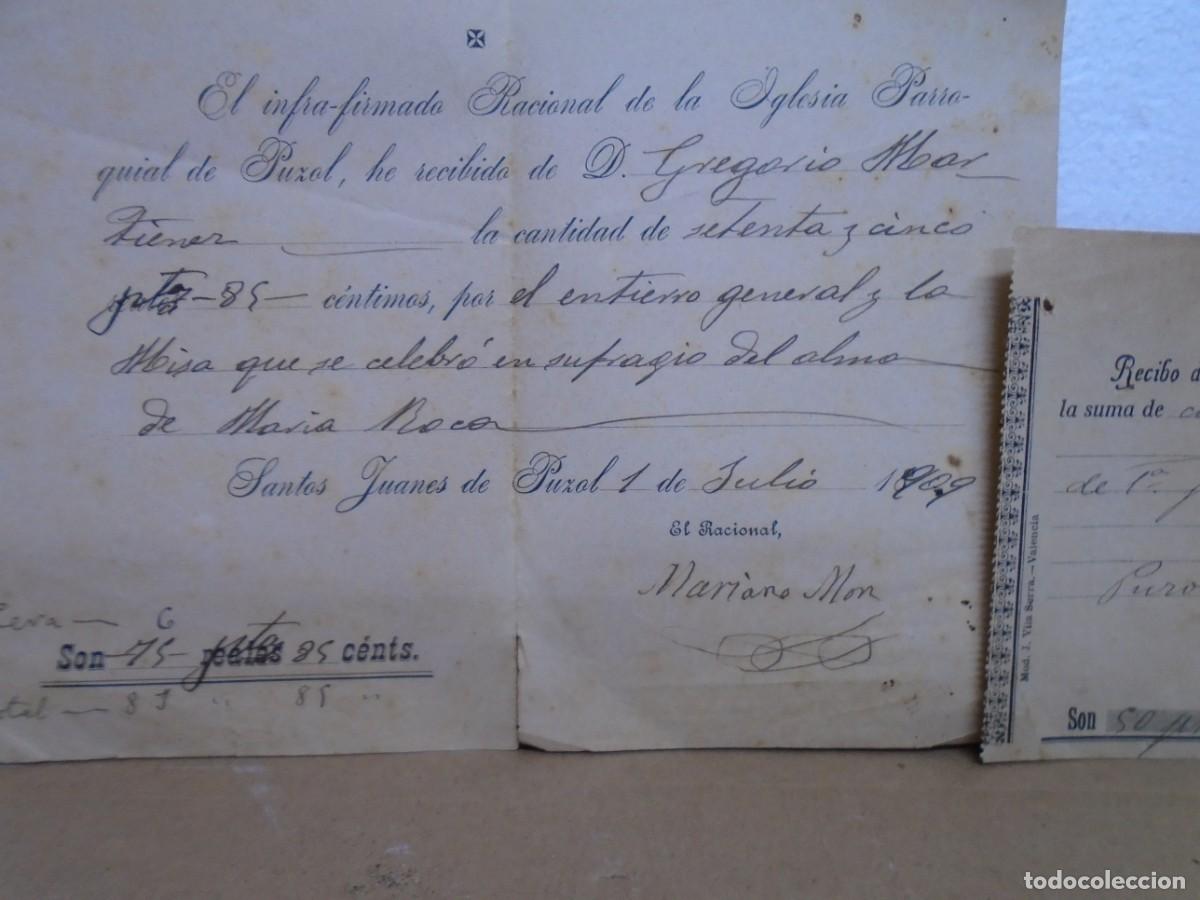 El infra-firmado Racional de la Iglesia Parro-
quial de Puzol, he recibido de D. Gregorio Mar
tienez la cantidad de setenta y cinco
ptas - 85 - céntimos, por el entierro general y la
Misa que se celebró en sufragio del alma
de Maria Roca
Santos Juanes de Puzol 1 de Julio 1909
El Racional,
Mariano Mon
Cera — 6
Son 75 ptas 85 cénts.
81 " 85 "
Recibo d
la suma de
de 1ª
Son 50
Mod. J. Vila Serra.—Valencia
todocoleccion